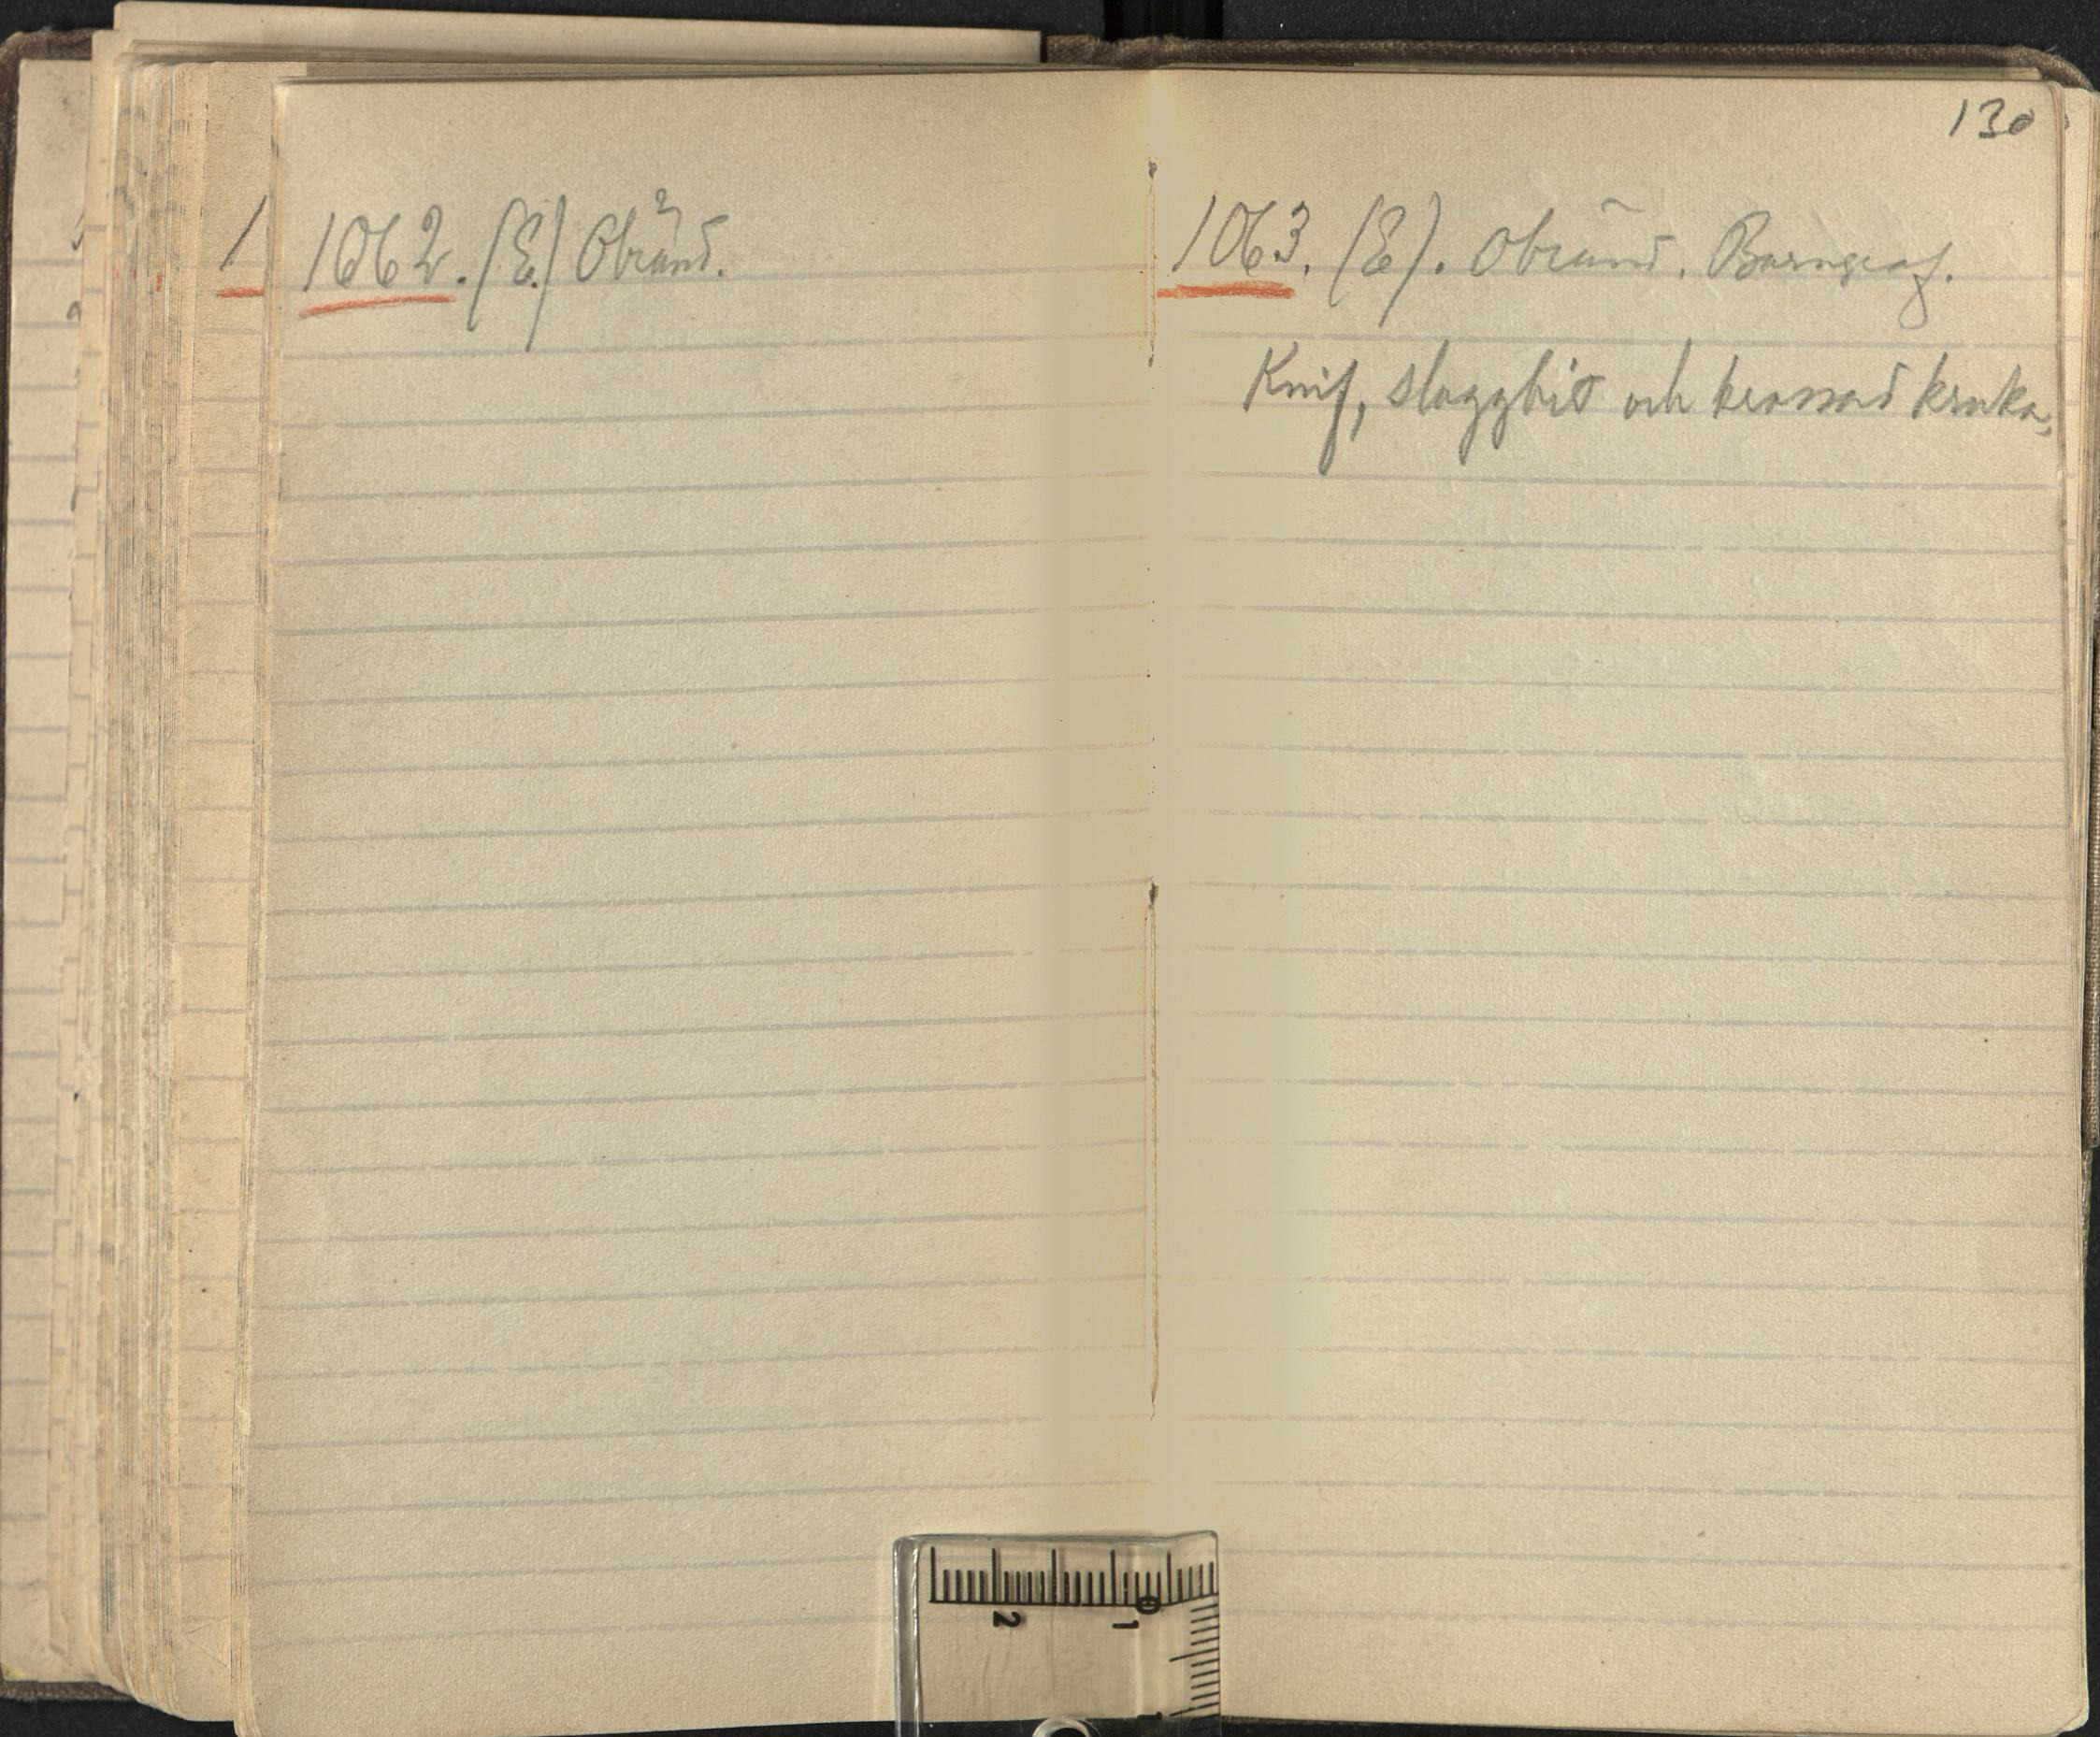 1062. (E.) Obränd.
130
1063. (E). Obränd. Barngraf.
Knif, slaggbit och krossad kruka,